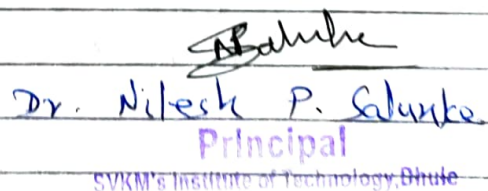 Dr. Nilesh P. Salunke
Principal
SVKM's Institute of Technology, Dhule